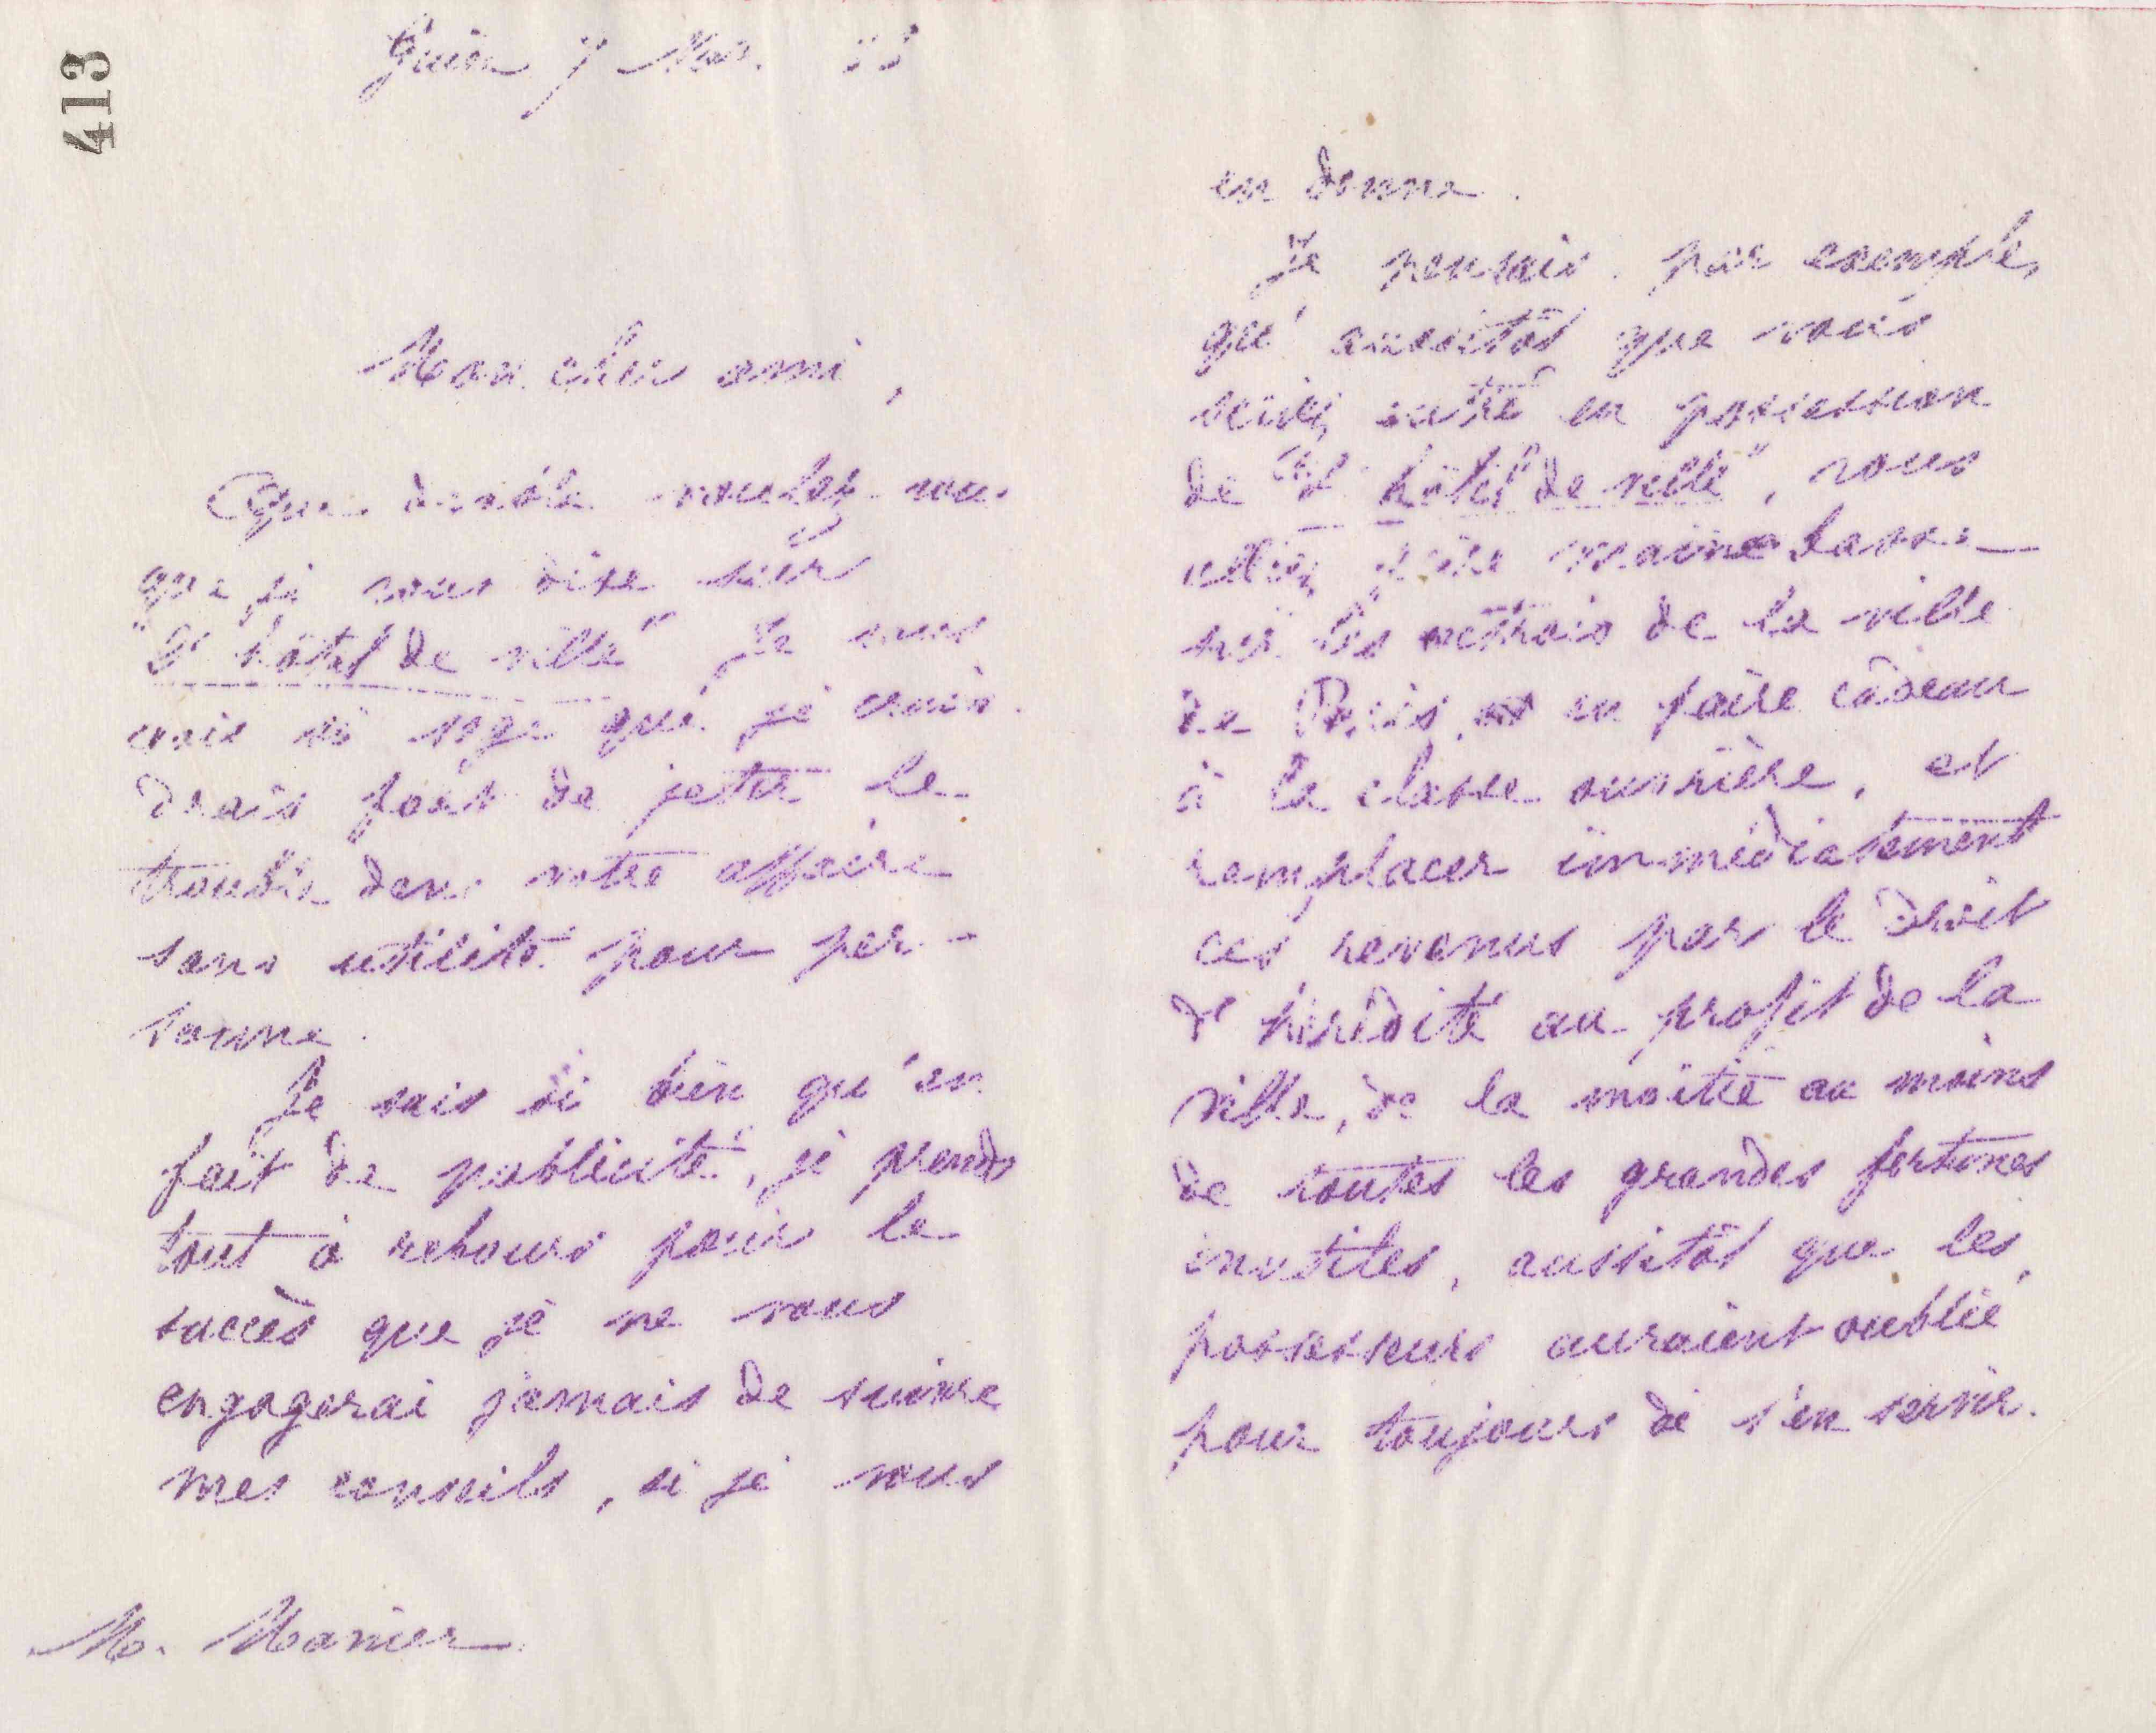 413
Guise 7 Mars 83
Mon cher ami,
Que diable voulez-vous
que je vous dise sur
"l'hôtel de ville" Je vous
crois si sage que je crain-
drais fort de jeter le
trouble dans votre affaire
sans utilité pour per-
sonne.
Je sais si bien qu'en
fait de publicité, je prends
tout à rebours pour le
succès que je ne vous
engagerai jamais de suivre
mes conseils, si je vous
M. Manier
en donne.
Je pensais par exemple,
qu'aussitôt que vous
seriez entré en possession
de "l'hôtel de ville", vous
alliez faire main basse
sur les octrois de la ville
de Paris, en faire cadeau
à la classe ouvrière, et
remplacer immédiatement
ces revenus par le droit
d'hérédité au profit de la
ville, de la moitié au moins
de toutes les grandes fortunes
inutiles, aussitôt que les
possesseurs auraient oublié
pour toujours de s'en servir.